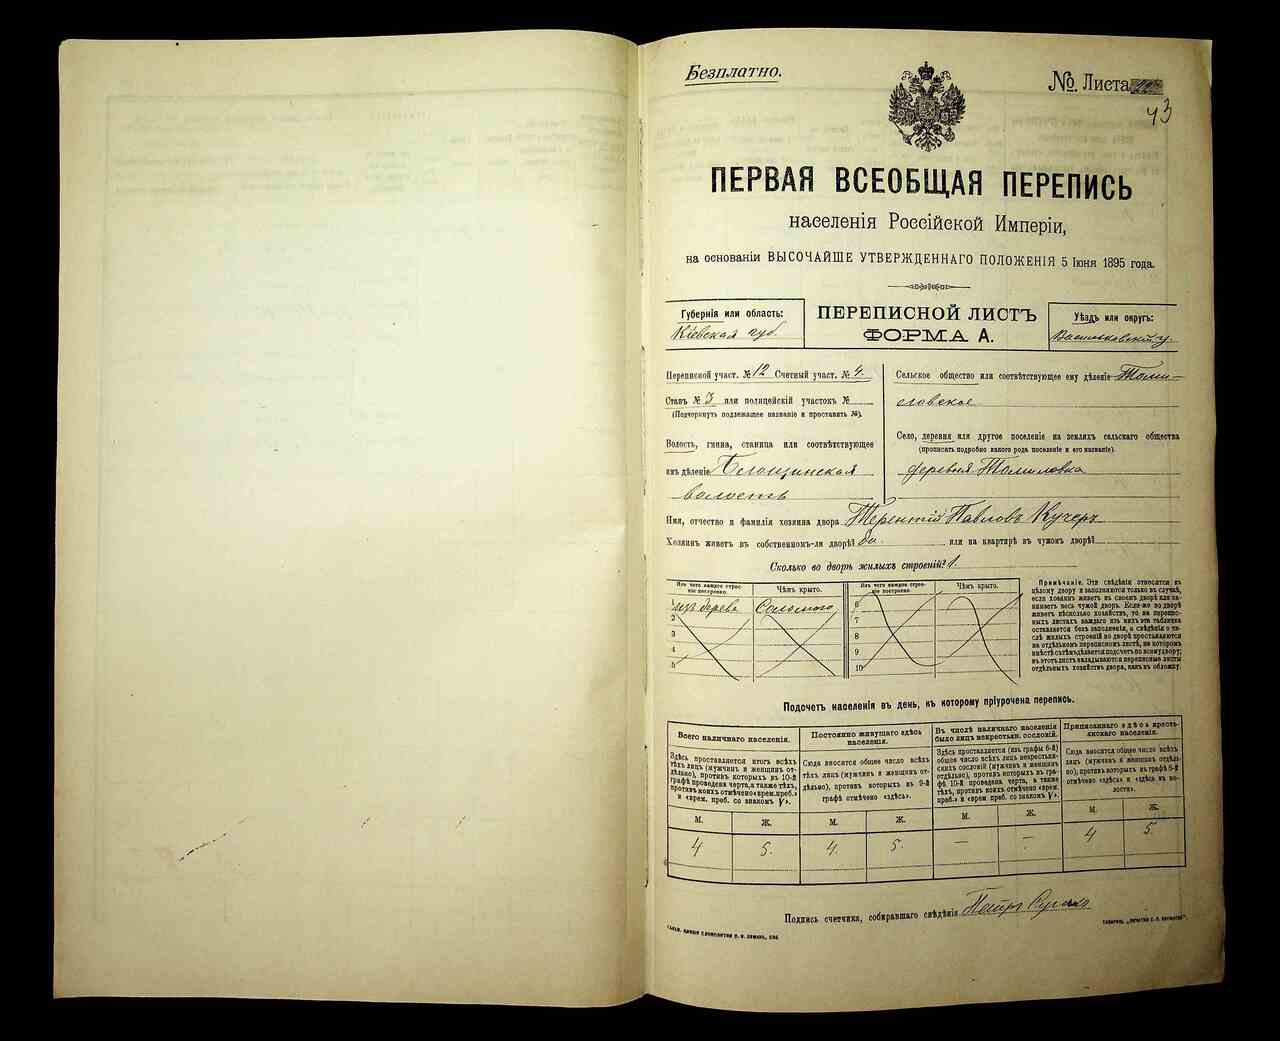 Безплатно.
№ Листа
43
ПЕРВАЯ ВСЕОБЩАЯ ПЕРЕПИСЬ
населенія Россійской Имперіи,
на основаніи ВЫСОЧАЙШЕ УТВЕРЖДЕННАГО ПОЛОЖЕНІЯ 5 Іюня 1895 года.
Губернія или область:
Кіевская губ.
ПЕРЕПИСНОЙ ЛИСТЪ
ФОРМА А.
Уѣздъ или округъ:
Васильковскій у.
Переписной участ. № 12 Счетный участ. № 4.
Станъ № 3 или полицейскій участокъ №
(Подчеркнуть подлежащее названіе и проставить №).
Волость, гмина, станица или соотвѣтствующее
имъ дѣленіе
волость
Сельское общество или соотвѣтствующее ему дѣленіе Томи-
ловское
Село, деревня или другое поселеніе на земляхъ сельскаго общества
(прописать подробно какого рода поселеніе и его названіе).
деревня Томиловка
Имя, отчество и фамилія хозяина двора Терентій Павловъ Кучеръ
Хозяинъ живетъ въ собственномъ-ли дворѣ? да. или на квартирѣ въ чужомъ дворѣ?
Сколько во дворѣ жилыхъ строеній? 1.
Изъ чего каждое строеніе построено. Чѣмъ крыто. Изъ чего каждое строеніе построено. Чѣмъ крыто.
1 изъ дерева Соломою 6
2 7
3 8
4 9
5 10
Примѣчаніе. Эти свѣдѣнія относятся къ
цѣлому двору и заполняются только въ случаѣ,
если хозяинъ живетъ въ своемъ дворѣ или на-
нимаетъ весь чужой дворъ. Если-же во дворѣ
живетъ нѣсколько хозяйствъ, то на перепис-
ныхъ листахъ каждаго изъ нихъ эта табличка
оставляется безъ заполненія, а свѣдѣнія о чи-
слѣ жилыхъ строеній во дворѣ проставляются
на отдѣльномъ переписномъ листѣ, на которомъ
вмѣстѣ съ тѣмъ дѣлается подсчетъ по всему двору;
въ этотъ листъ вкладываются переписные листы
отдѣльныхъ хозяйствъ двора, какъ въ обложку.
Подсчетъ населенія въ день, къ которому пріурочена перепись.
Всего наличнаго населенія.
Здѣсь проставляется итогъ всѣхъ
тѣхъ лицъ (мужчинъ и женщинъ от-
дѣльно), противъ которыхъ въ 10-й
графѣ проведена черта, а также тѣхъ,
противъ коихъ отмѣчено «врем. преб.»
и «врем. преб. со знакомъ V».
Постоянно живущаго здѣсь
населенія.
Сюда вносится общее число всѣхъ
тѣхъ лицъ (мужчинъ и женщинъ от-
дѣльно), противъ которыхъ въ 9-й
графѣ отмѣчено «здѣсь».
Въ числѣ наличнаго населенія
было лицъ некрестьян. сословій.
Здѣсь проставляется (изъ графы 6-й)
общее число всѣхъ лицъ некрестьян-
скихъ сословій (мужчинъ и женщинъ
отдѣльно), противъ которыхъ въ гра-
фѣ 10-й проведена черта, а также
тѣхъ, противъ коихъ отмѣчено «врем.
преб.» и «врем. преб. со знакомъ V».
Приписаннаго здѣсь кресть-
янскаго населенія.
Сюда вносится общее число всѣхъ
лицъ (мужчинъ и женщинъ отдѣль-
но), противъ которыхъ въ графѣ 8-й
отмѣчено «здѣсь» и «здѣсь въ во-
лости».
М. Ж. М. Ж. М. Ж. М. Ж.
4 5. 4. 5. — — 4 5.
Подпись счетчика, собиравшаго свѣдѣнія Петръ